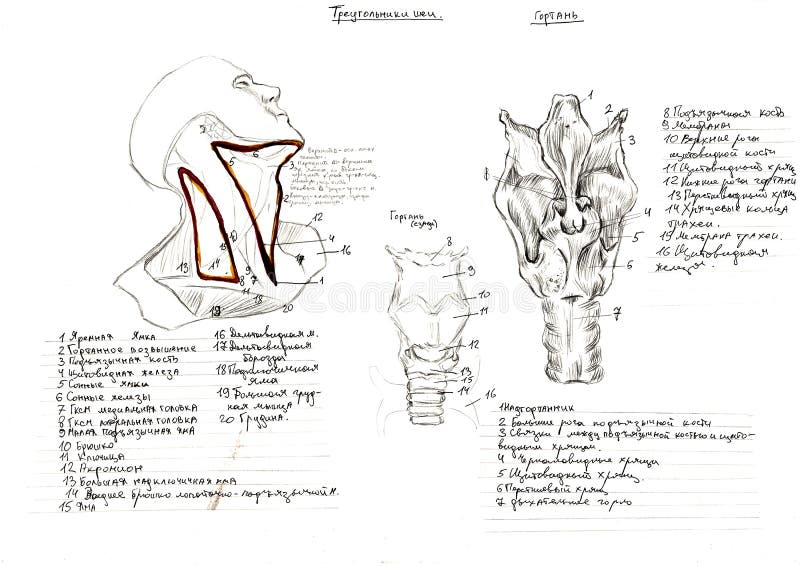 Треугольники шеи.
Гортань
1
2
3
4
5
6
7
8 Подъязычная кость
9 Мембраны
10 Верхние рога
щитовидной кости
11 Щитовидный хрящ
12 Нижние рога гортани
13 Перстневидный хрящ
14 Хрящевые кольца
трахеи.
15 Мембрана трахеи.
16 Щитовидная
железа.
Гортань
(спереди)
8
9
10
11
12
13
15
14
16
5
6
3
2
12
4
16
1
13
14
15
10
9
8
7
11
18
20
19
1 Яремная ямка
2 Гортанное возвышение
3 Подъязычная кость
4 Щитовидная железа
5 Сонные ямки
6 Сонные железы
7 Гксм медиальная головка
8 Гксм латеральная головка
9 Малая подъязычная яма
10 Брюшко
11 Ключица
12 Акромион
13 Большая надключичная яма
14 Заднее брюшко лопаточно-подъязычной м.
15 Яма
16 Дельтовидная м.
17 Дельтовидная
борозда
18 Подключичная
яма
19 Большая груд-
ная мышца
20 Грудина.
1 Надгортанник
2 Большие рога подъязычной кости
3 Связки между подъязычной костью и щито-
видным хрящом.
4 Черпаловидные хрящи
5 Щитовидный хрящ.
6 Перстневый хрящ
7 дыхательное горло
dreamstime